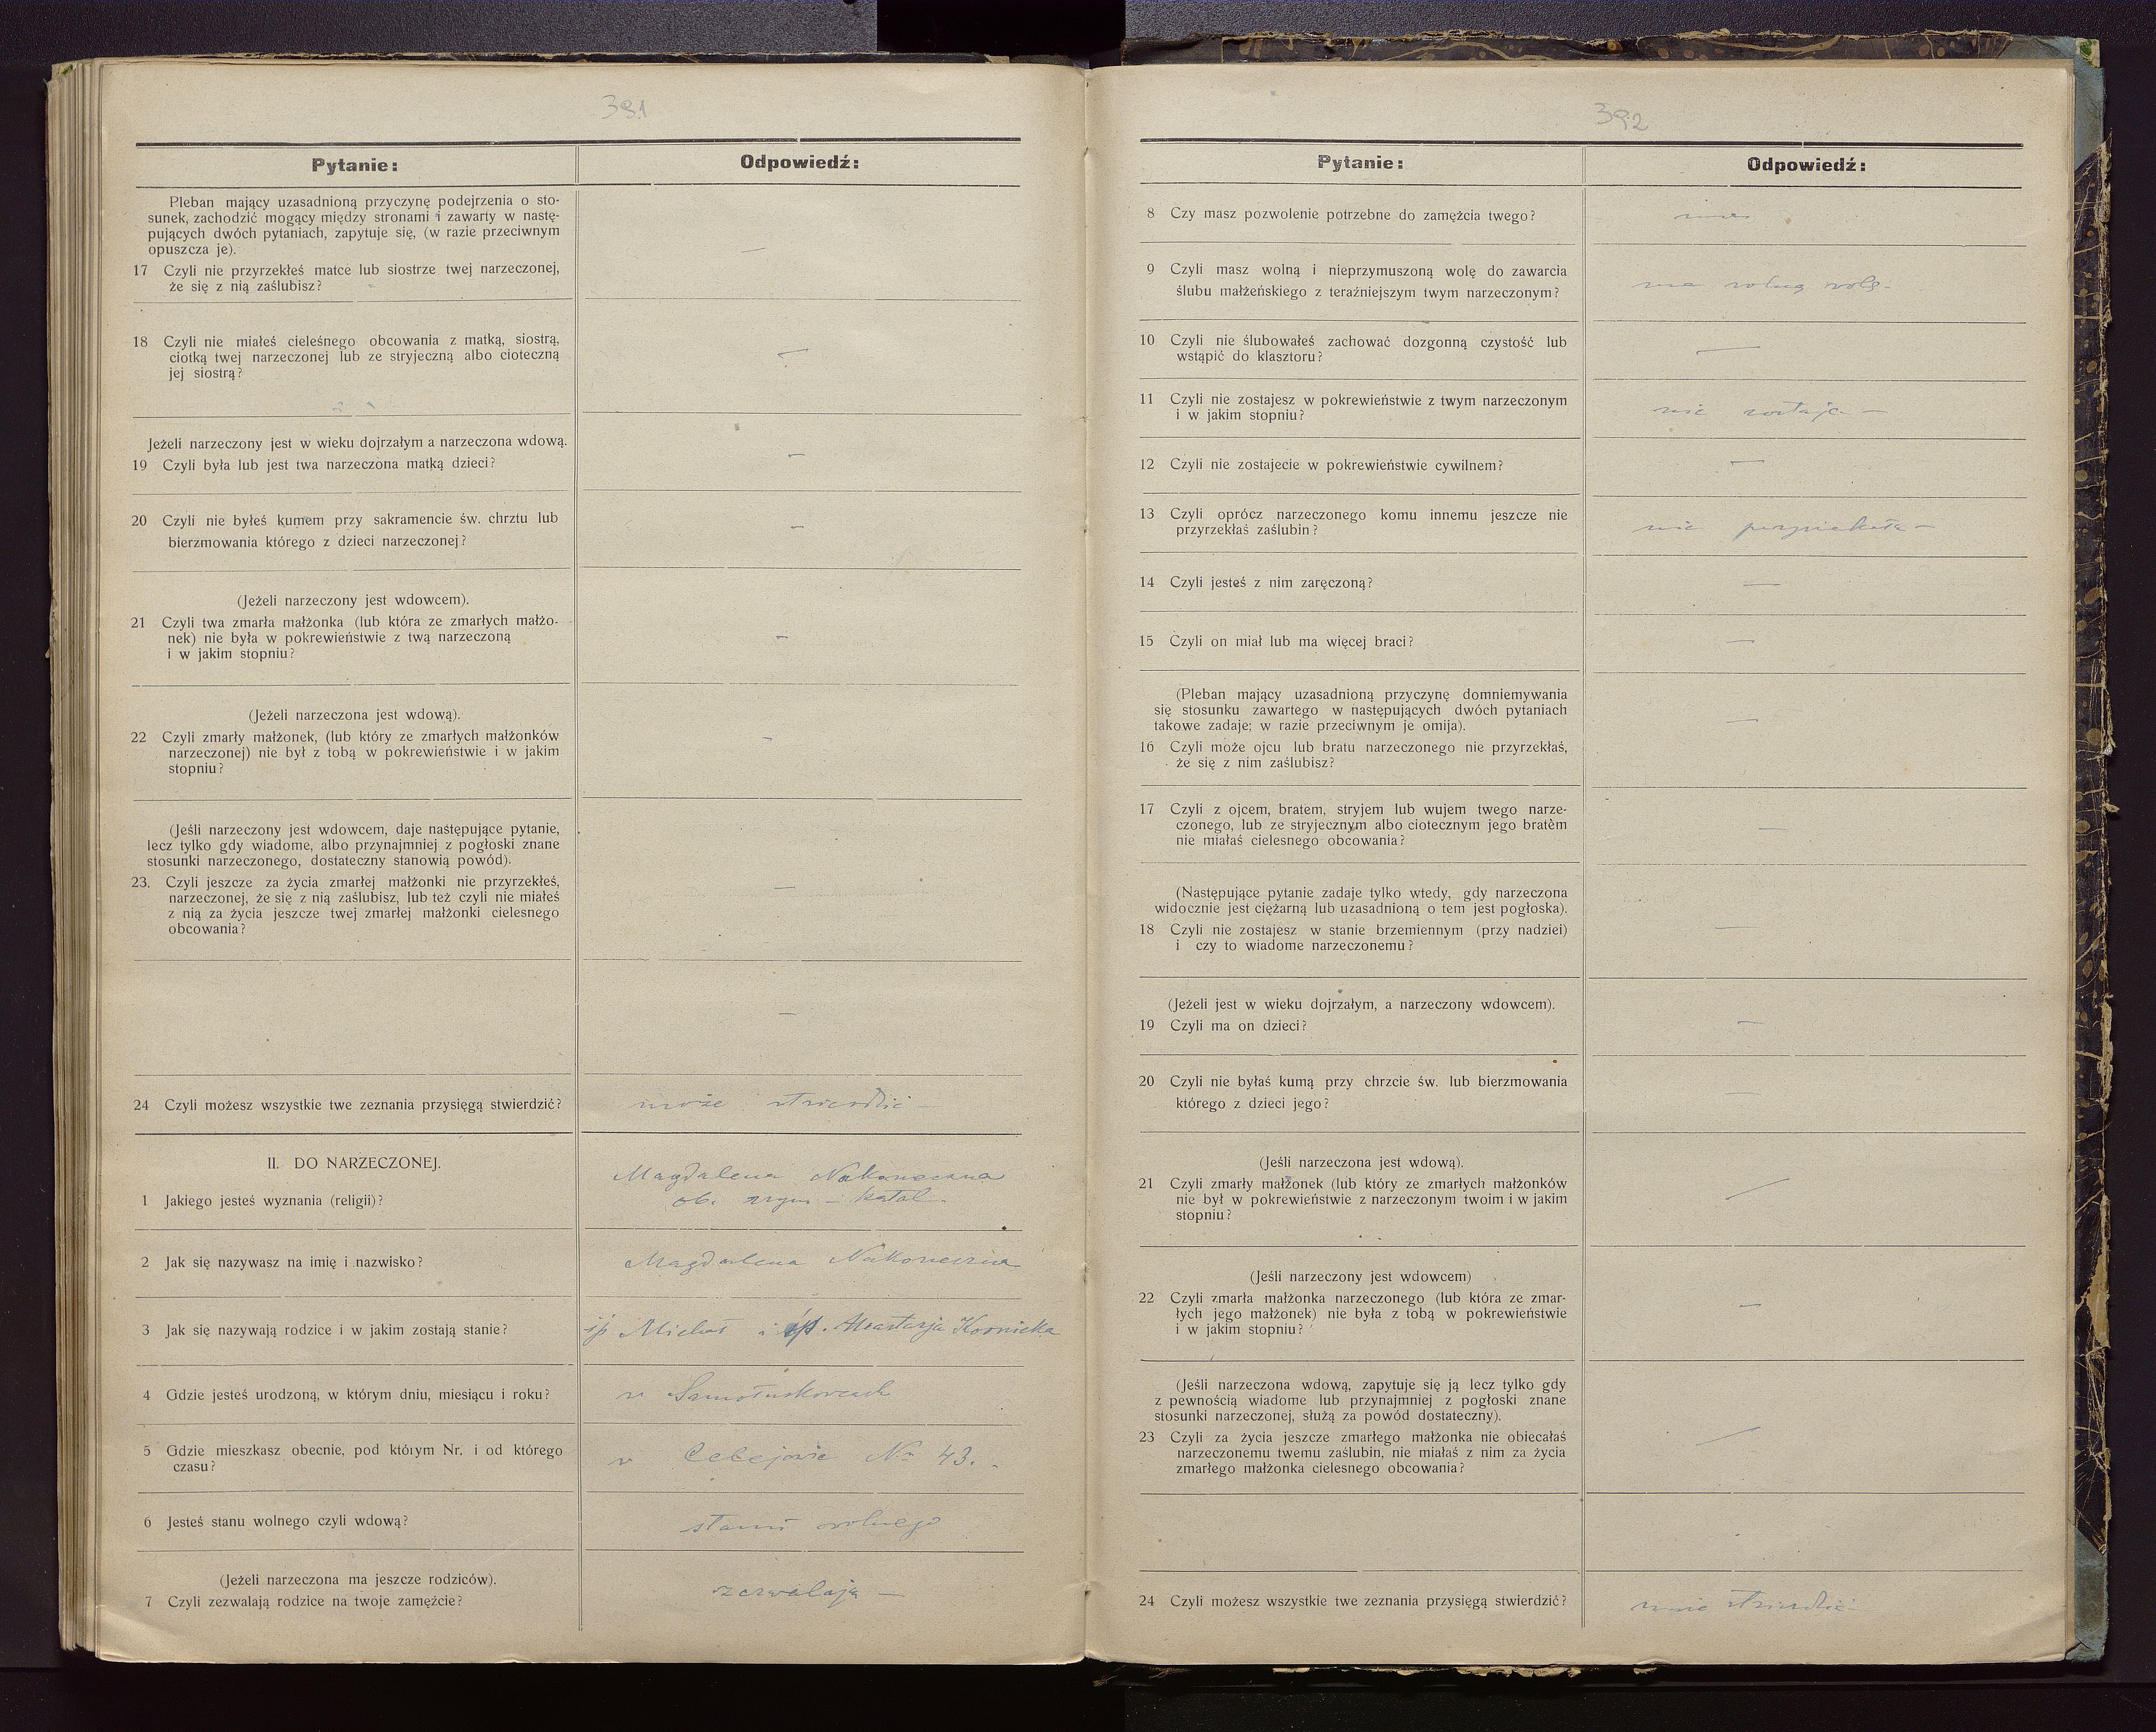 391
Pytanie:
Odpowiedź:
Pleban mający uzasadnioną przyczynę podejrzenia o sto-
sunek, zachodzić mogący między stronami i zawarty w nastę-
pujących dwóch pytaniach, zapytuje się, (w razie przeciwnym
opuszcza je).
—
17 Czyli nie przyrzekłeś matce lub siostrze twej narzeczonej,
że się z nią zaślubisz?
18 Czyli nie miałeś cieleśnego obcowania z matką, siostrą,
ciotką twej narzeczonej lub ze stryjeczną albo cioteczną
jej siostrą?
—
Jeżeli narzeczony jest w wieku dojrzałym a narzeczona wdową.
19 Czyli była lub jest twa narzeczona matką dzieci?
—
20 Czyli nie byłeś kumem przy sakramencie św. chrztu lub
bierzmowania którego z dzieci narzeczonej?
—
(Jeżeli narzeczony jest wdowcem).
21 Czyli twa zmarła małżonka (lub która ze zmarłych małżo-
nek) nie była w pokrewieństwie z twą narzeczoną
i w jakim stopniu?
—
(Jeżeli narzeczona jest wdową).
22 Czyli zmarły małżonek, (lub który ze zmarłych małżonków
narzeczonej) nie był z tobą w pokrewieństwie i w jakim
stopniu?
—
(Jeśli narzeczony jest wdowcem, daje następujące pytanie,
lecz tylko gdy wiadome, albo przynajmniej z pogłoski znane
stosunki narzeczonego, dostateczny stanowią powód).
23. Czyli jeszcze za życia zmarłej małżonki nie przyrzekłeś,
narzeczonej, że się z nią zaślubisz, lub też czyli nie miałeś
z nią za życia jeszcze twej zmarłej małżonki cielesnego
obcowania?
—
—
24 Czyli możesz wszystkie twe zeznania przysięgą stwierdzić?
może stwierdzić —
II. DO NARZECZONEJ.
Magdalena Nakoneczna
1 Jakiego jesteś wyznania (religii)?
ob. rzym - katol.
2 Jak się nazywasz na imię i nazwisko?
Magdalena Nakoneczna
3 Jak się nazywają rodzice i w jakim zostają stanie?
śp Michał i śp. Anastazja
4 Gdzie jesteś urodzoną, w którym dniu, miesiącu i roku?
w Samołuskowcach
5 Gdzie mieszkasz obecnie, pod którym Nr. i od którego
czasu?
w Celejowie No 43. -
6 Jesteś stanu wolnego czyli wdową?
stanu wolnego
(Jeżeli narzeczona ma jeszcze rodziców).
7 Czyli zezwalają rodzice na twoje zamężcie?
zezwalają —
392
Pytanie:
Odpowiedź:
8 Czy masz pozwolenie potrzebne do zamężcia twego?
9 Czyli masz wolną i nieprzymuszoną wolę do zawarcia
ślubu małżeńskiego z teraźniejszym twym narzeczonym?
ma wolną wolę -
10 Czyli nie ślubowałeś zachować dozgonną czystość lub
wstąpić do klasztoru?
—
11 Czyli nie zostajesz w pokrewieństwie z twym narzeczonym
i w jakim stopniu?
nie zostaje —
12 Czyli nie zostajecie w pokrewieństwie cywilnem?
—
13 Czyli oprócz narzeczonego komu innemu jeszcze nie
przyrzekłaś zaślubin?
nie przyrzekała —
14 Czyli jesteś z nim zaręczoną?
—
15 Czyli on miał lub ma więcej braci?
—
(Pleban mający uzasadnioną przyczynę domniemywania
się stosunku zawartego w następujących dwóch pytaniach
takowe zadaje; w razie przeciwnym je omija).
—
16 Czyli może ojcu lub bratu narzeczonego nie przyrzekłaś,
że się z nim zaślubisz?
17 Czyli z ojcem, bratem, stryjem lub wujem twego narze-
czonego, lub ze stryjecznym albo ciotecznym jego bratem
nie miałaś cielesnego obcowania?
—
(Następujące pytanie zadaje tylko wtedy, gdy narzeczona
widocznie jest ciężarną lub uzasadnioną o tem jest pogłoska).
18 Czyli nie zostajesz w stanie brzemiennym (przy nadziei)
i czy to wiadome narzeczonemu?
—
(Jeżeli jest w wieku dojrzałym, a narzeczony wdowcem).
19 Czyli ma on dzieci?
—
20 Czyli nie byłaś kumą przy chrzcie św. lub bierzmowania
którego z dzieci jego?
—
(Jeśli narzeczona jest wdową).
21 Czyli zmarły małżonek (lub który ze zmarłych małżonków
nie był w pokrewieństwie z narzeczonym twoim i w jakim
stopniu?
—
(Jeśli narzeczony jest wdowcem)
22 Czyli zmarła małżonka narzeczonego (lub która ze zmar-
łych jego małżonek) nie była z tobą w pokrewieństwie
i w jakim stopniu?
—
(Jeśli narzeczona wdową, zapytuje się ją lecz tylko gdy
z pewnością wiadome lub przynajmniej z pogłoski znane
stosunki narzeczonej, służą za powód dostateczny).
23 Czyli za życia jeszcze zmarłego małżonka nie obiecałaś
narzeczonemu twemu zaślubin, nie miałaś z nim za życia
zmarłego małżonka cielesnego obcowania?
—
24 Czyli możesz wszystkie twe zeznania przysięgą stwierdzić?
może stwierdzić —